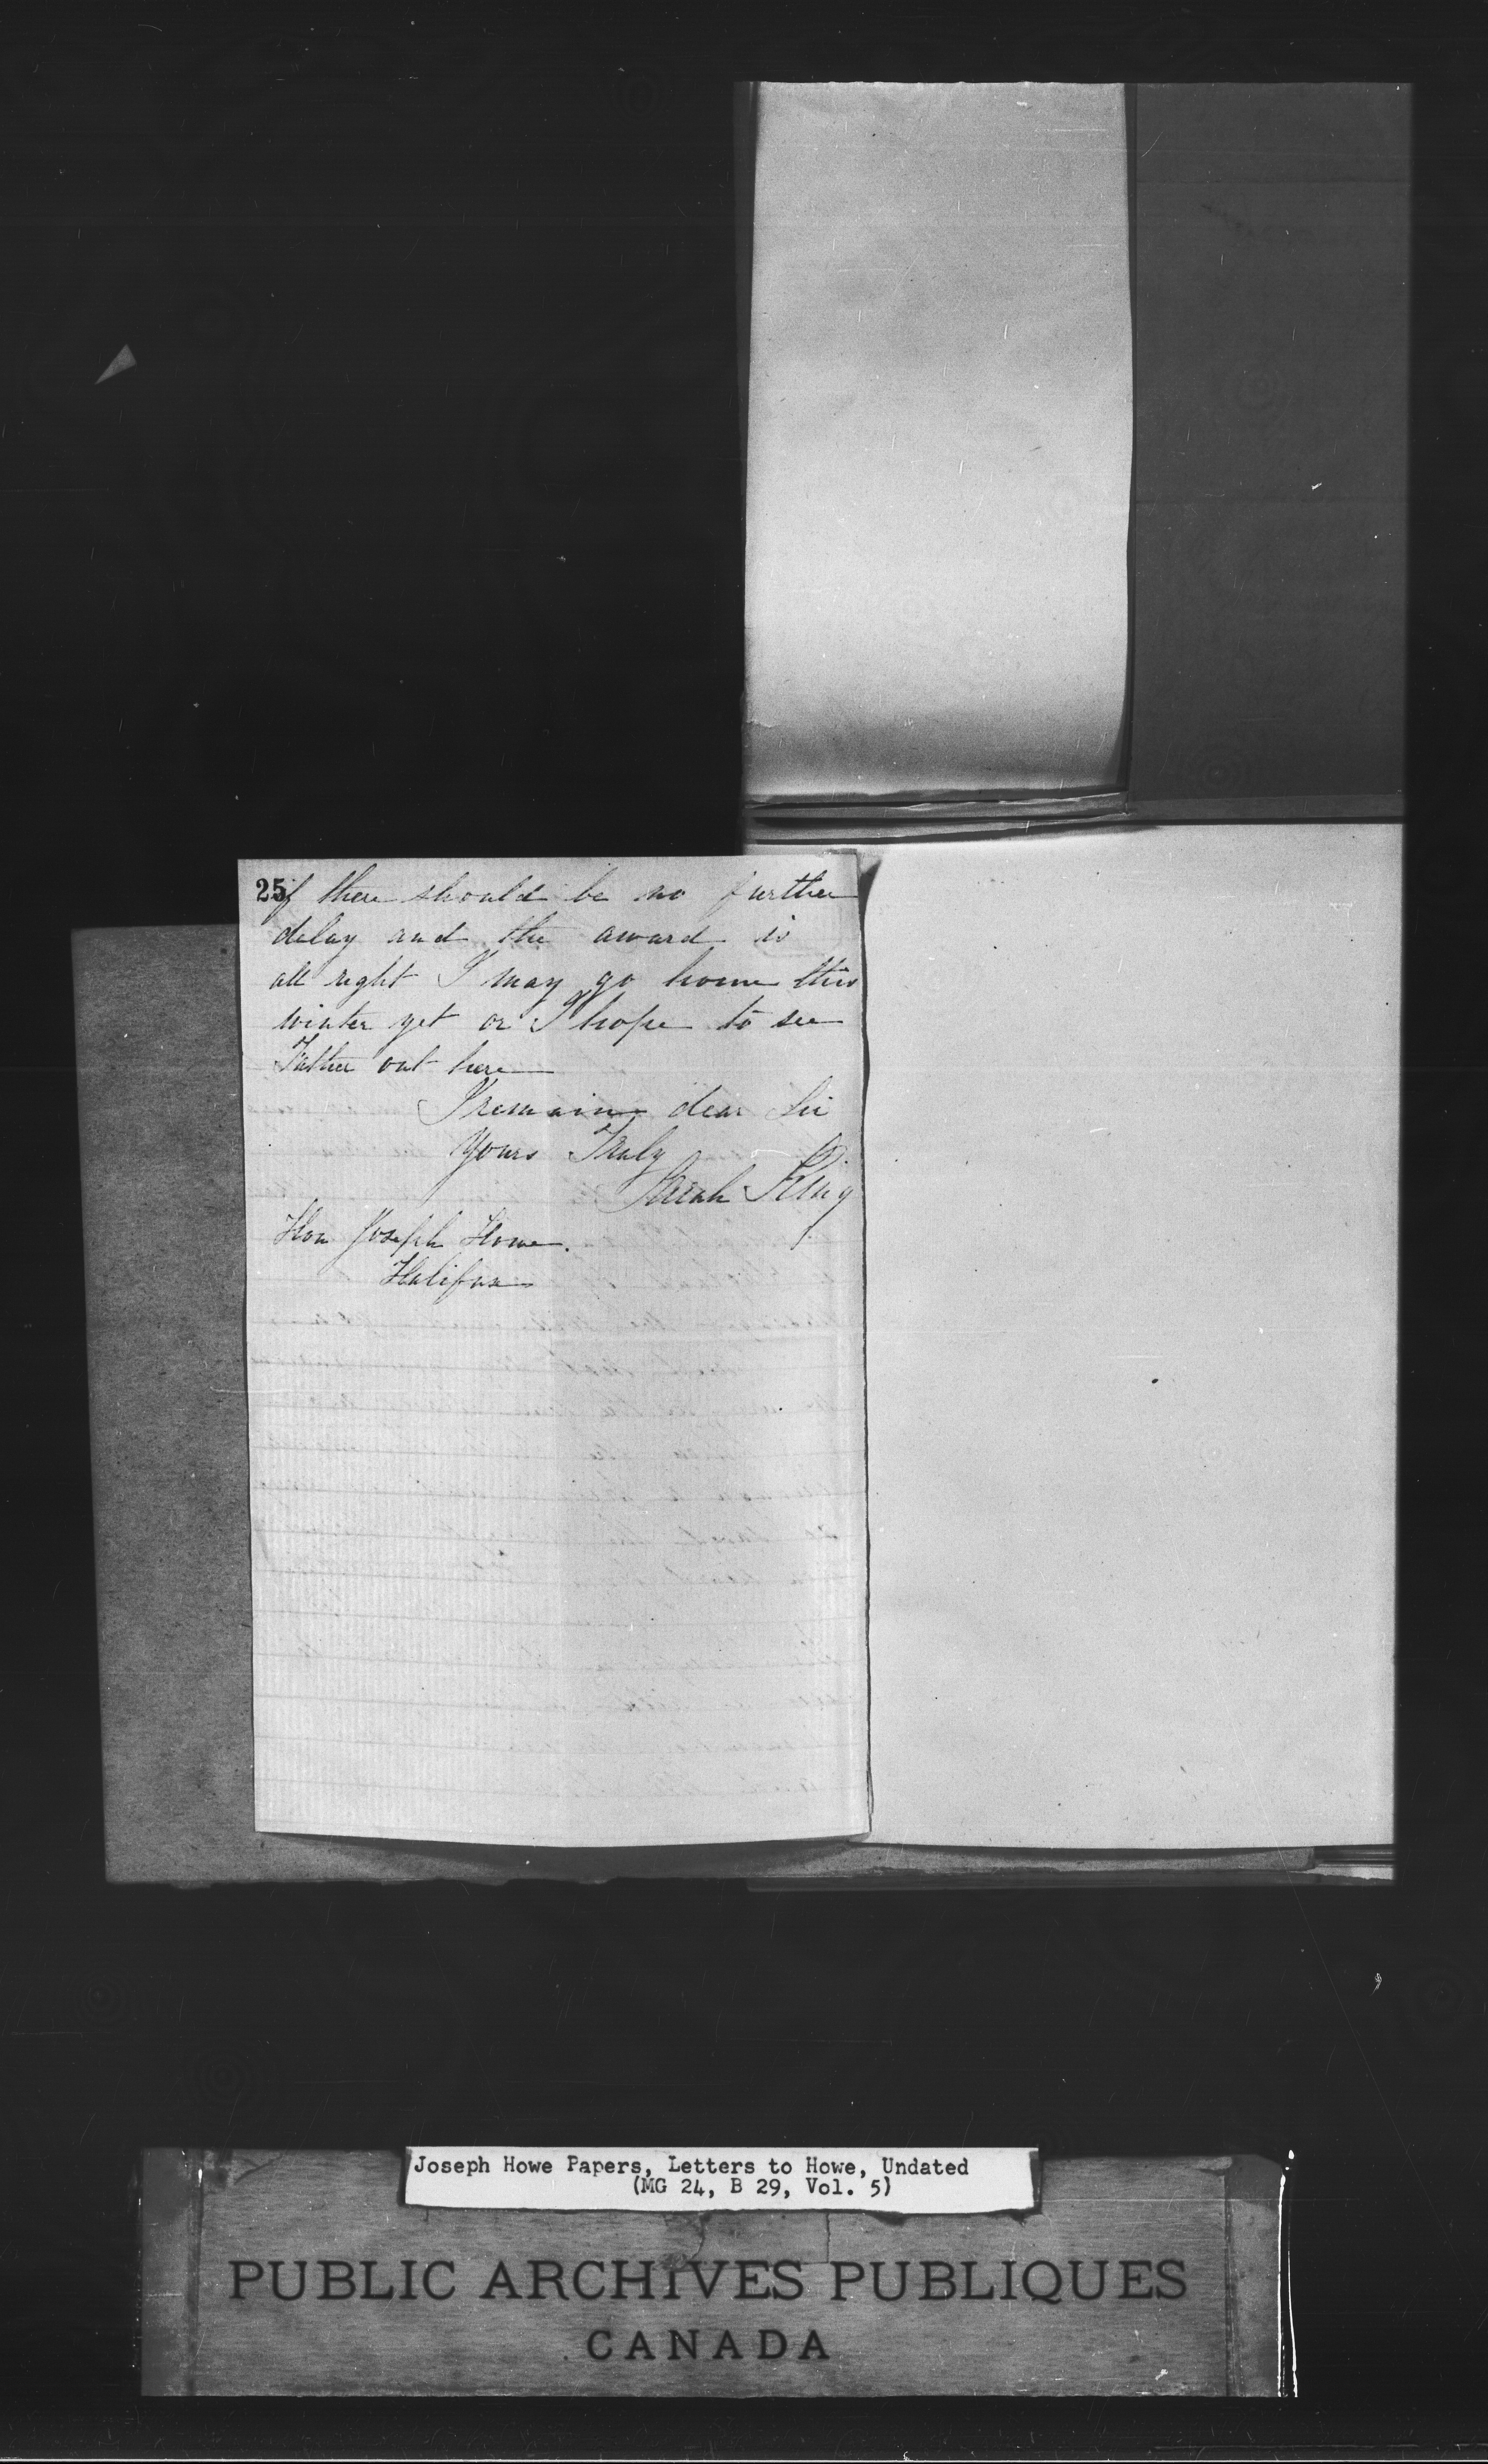 25
if there should be no further
delay and the award is
all right I may go home this
winter yet or I hope to see
Father out here
I remain dear Sir
Yours Truly
Sarah King
Hon Joseph Howe.
Halifax
Joseph Howe Papers, Letters to Howe, Undated
(MG 24, B 29, Vol. 5)
PUBLIC ARCHIVES PUBLIQUES
CANADA